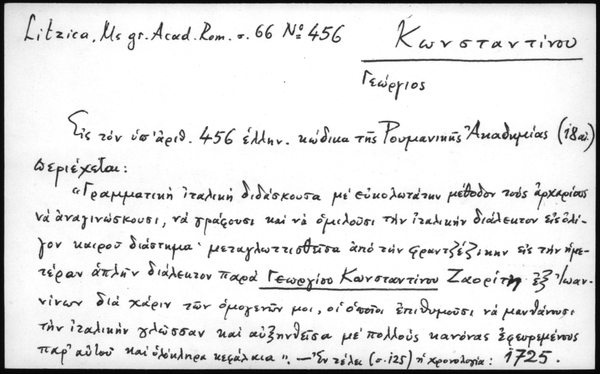 Litzica, Ms gr. Acad. Rom. σ. 66 Nº 456
Κωνσταντίνου
Γεώργιος
Εἰς τὸν ὑπ' ἀριθ. 456 ἑλλην. κώδικα τῆς Ρουμανικῆς Ἀκαδημίας (18 αἰ.)
περιέχεται:
"Γραμματικὴ ἰταλικὴ διδάσκουσα μὲ εὐκολωτάτην μέθοδον τοὺς ἀρχαρίους
νὰ ἀναγινώσκουσι, νὰ γράφουσι καὶ νὰ ὁμιλοῦσι τὴν ἰταλικὴν διάλεκτον εἰς ὀλί-
γον καιροῦ διάστημα· μεταγλωττισθεῖσα ἀπὸ τὴν φραντζέζικην εἰς τὴν ἡμε-
τέραν ἁπλῆν διάλεκτον παρὰ Γεωργίου Κωνσταντίνου Ζαορίτη ἐξ Ἰωαν-
νίνων διὰ χάριν τῶν ὁμογενῶν μοι, οἱ ὁποῖοι ἐπιθυμοῦσι νὰ μανθάνουσι
τὴν ἰταλικὴν γλῶσσαν καὶ αὐξηνθεῖσα μὲ πολλοὺς κανόνας ἐφευρεμένους
παρ' αὐτοῦ καὶ ὁλόκληρα κεφάλαια". — Ἐν τέλει (σ. 125) ἡ χρονολογία: 1725.